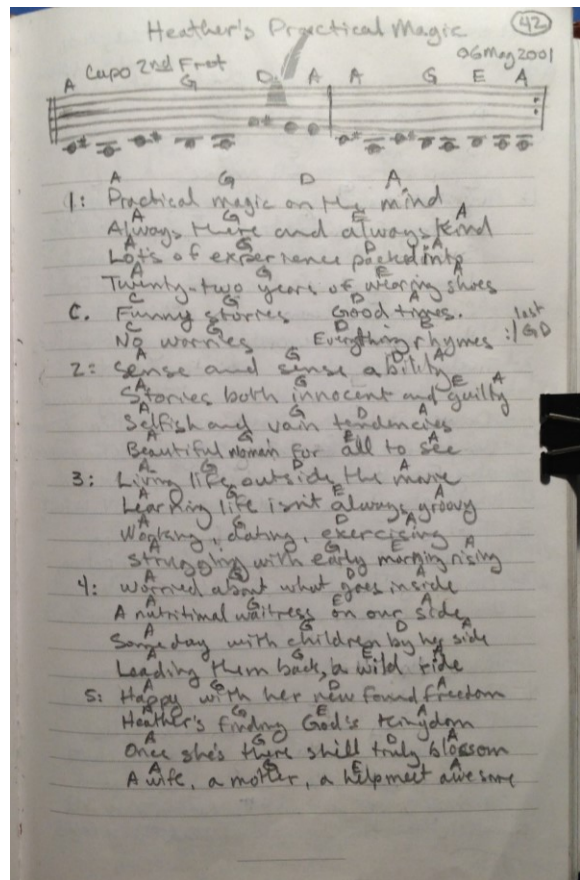 Heather's Practical Magic 42
06May2001
Capo 2nd Fret
A G D A A G E A
A G D A
1: Practical magic on the mind
A G E A
Always there and always kind
A G D A
Lot's of experience packed into
A G E A
Twenty-two years of wearing shoes
C G D A
C. Funny stories Good times.
C G D E
No worries Everything rhymes :/ last GD
A G D A
2: Sense and sense ability
A G E A
Stories both innocent and guilty
A G D A
Selfish and vain tendencies
A G E A
Beautiful woman for all to see
A G D A
3: Living life outside the movie
A G E A
Learning life isn't always groovy
A G D A
Working, dating, exercising
A G E A
Struggling with early morning rising
A G D A
4: Worried about what goes inside
A G E A
A nutritional waitress on our side
A G D A
Someday with children by her side
A G E A
Leading them back, a wild ride
A G D A
5: Happy with her new found freedom
A G E A
Heather's finding God's Kingdom
A G D A
Once she's there shill truly blossom
A G E A
A wife, a mother, a helpmeet awesome